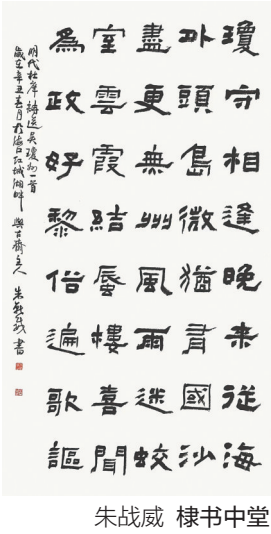 瓊守相逢晚来從海
外頭島微猶君國沙
盡更無州風雨迷蛟
室雲霞結蜃樓喜聞
為政好黎俗遍歌謳
明代杜庠詩送吴瓊州一首
歲在辛丑月於海口紅城湖畔與古齋主人朱战威書
朱战威 棣书中堂